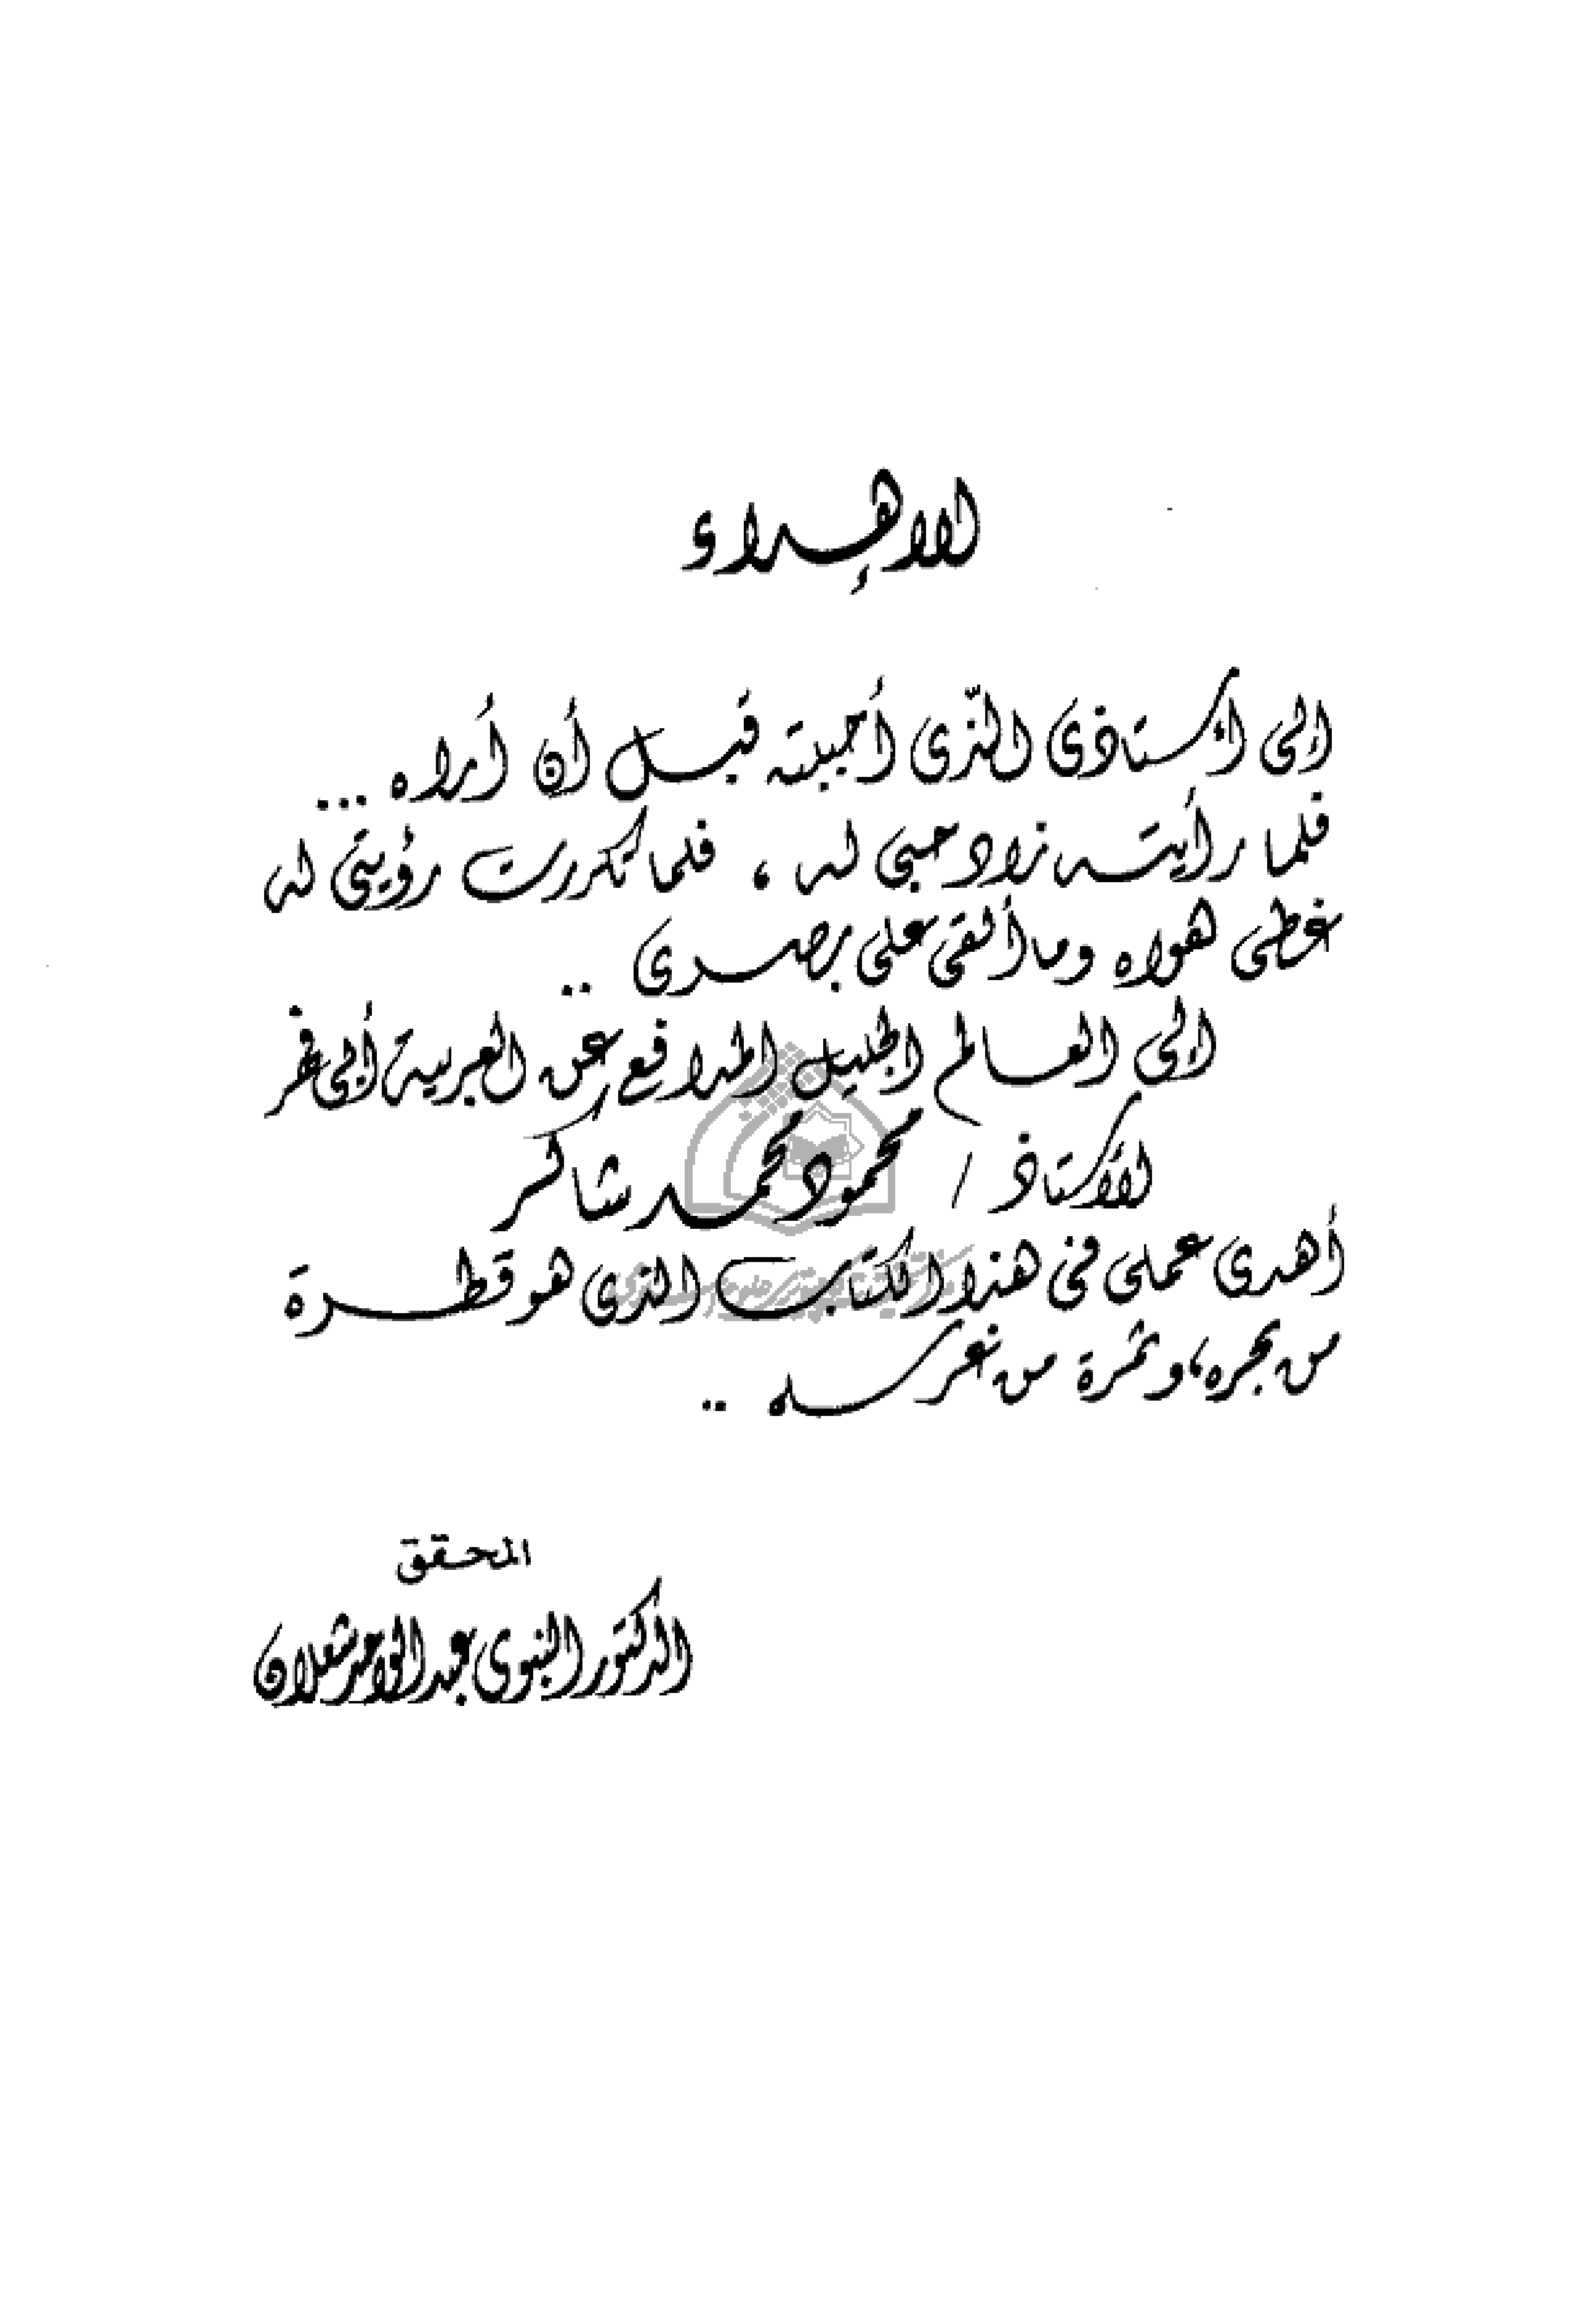 الإهداء
إلى أستاذى الذّى أحببته قبل أن أراه ...
فلما رأيته زاد حبى له ، فلما تكررت رؤيتى له
غطى هواه وما ألقى على بصرى ..
إلى العالم الجليل المدافع عن العربية أبى فهر
الأستاذ / محمود محمد شاكر
أهدى عملى فى هذا الكتاب الذى هو قطرة
من بحره، وثمرة من غرسه ..
المحقق
الدكتور النبوى عبد الواحد شعلان